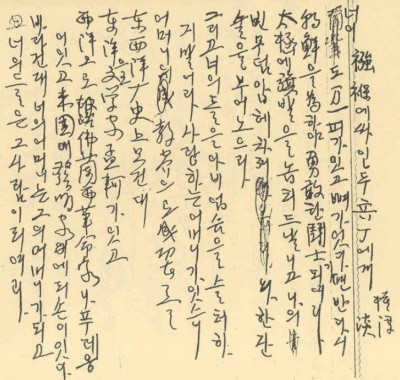 襁褓에 싸인 두 兵丁에게
너이도 万一 피가 잇고 뼈가 잇다면 반다시
朝鮮을 爲하야 勇敢한 鬪士가 되여라
太極에 旗발을 놉피 드날니고 나의
빈 무덤 압헤 차져와 한잔
술을 부어 노으라
그리고 너의들은 아비 업슴을 슬퍼하
지 말어라 사랑하는 어머니가 잇스니
어머니의 敎育으로 成功者를
东西洋 史上 보건대
东洋으로 文学家 孟軻가 잇고
西洋으로 佛蘭西 革命家 나푸레옹
이 잇고 米国에 發明家 에디손이 잇다
바라건대 너의 어머니는 그의 어머니가 되고
너의들은 그 사람이 되여라